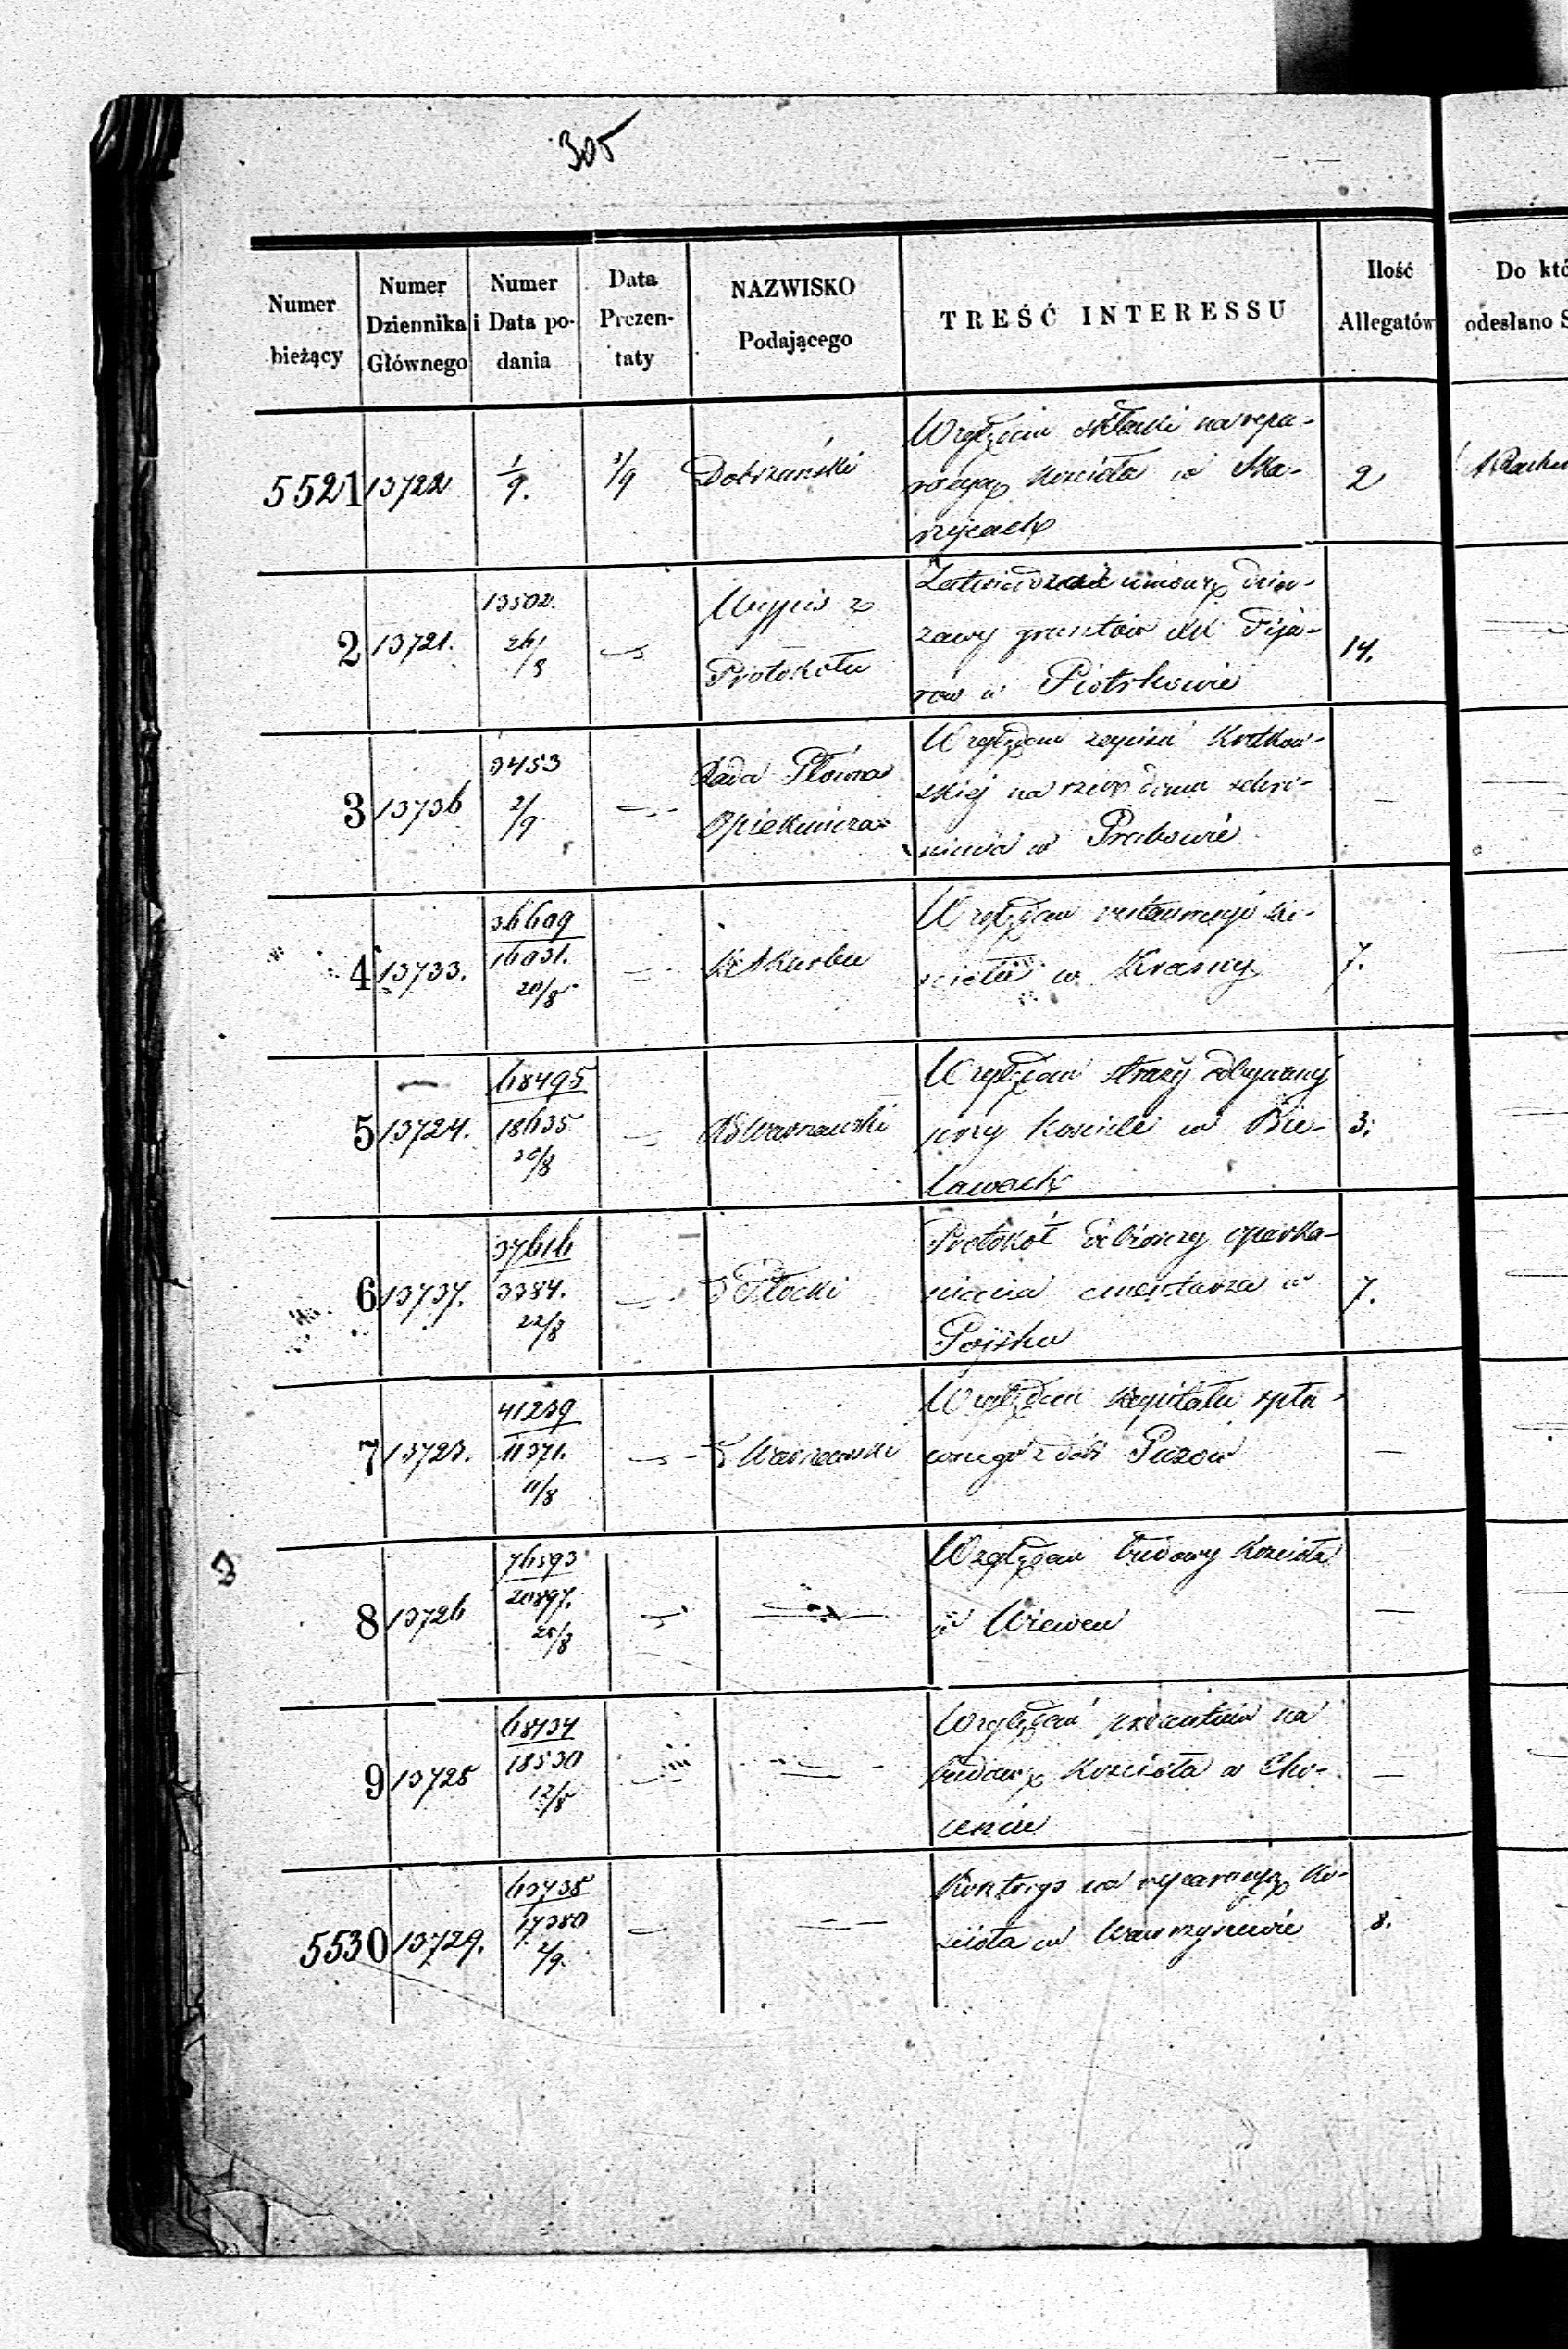 305
Numer bieżący
Numer Dziennika Głównego
Numer i Data podania
Data Prezentaty
NAZWISKO Podającego
TREŚĆ INTERESSU
Ilość Allegatów
Do któ
odesłano S
5521 13722 1/9. 3/9 Dobrzański
Względem składki na repa-
racyą kościoła w Ma-
rzycach
2
2 13721. 13502.
26/8
Wypis z
Protokołu
umowy dzier-
żawy gruntów XX Pija-
rów w Piotrkowie
14.
3 13736 9453
2/9
Rada Główna
Opiekuńcza
Względem zapisu
skiej na rzecz domu schro-
nienia w
4 13733. 36609
16031.
20/8
K Skarbu
Względem restauracyi ko-
ścioła w Krasny
7.
5 13724. 68495
18635
30/8
RG Warszawski
Względem straży odbywany
przy kościele w Bie-
lawach
3.
6 13737. 37616
3384.
22/8
Płocki
Protokół odbiorczy oparka-
nienia cmentarza w
7.
7 13723. 41239
11371.
11/8
Warszawski
Względem kapitału spła-
conego z dóbr
—
8 13726 76593
20897.
20/8
Względem budowy kościoła
w
—
9 13725 68434
18530
12/8
Względem procentów na
budowę kościoła w Cho-
—
5530 13729. 63738
17380
2/9.
na reparacyą ko-
ścioła w Wawrzyszewie
8.